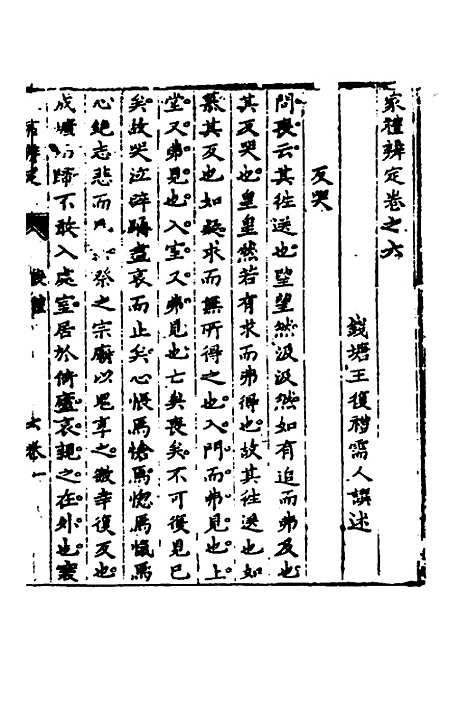 家禮辨定卷之六
錢塘王復禮需人譔述
反哭
問喪云其往送也望望然汲汲然如有追而弗及也
其反哭也皇皇然若有求而弗得也故其往送也如
慕其反也如疑求而無所得之也入門而弗見也上
堂又弗見也入室又弗見也亡矣喪矣不可復見已
矣故哭泣辟踊盡哀而止矣心悵焉愴焉惚焉愾焉
心絕志悲而已 祭之宗廟以鬼享之徼幸復反也
成壙而歸不敢入處室居於倚廬哀親之在外也寢
辨定